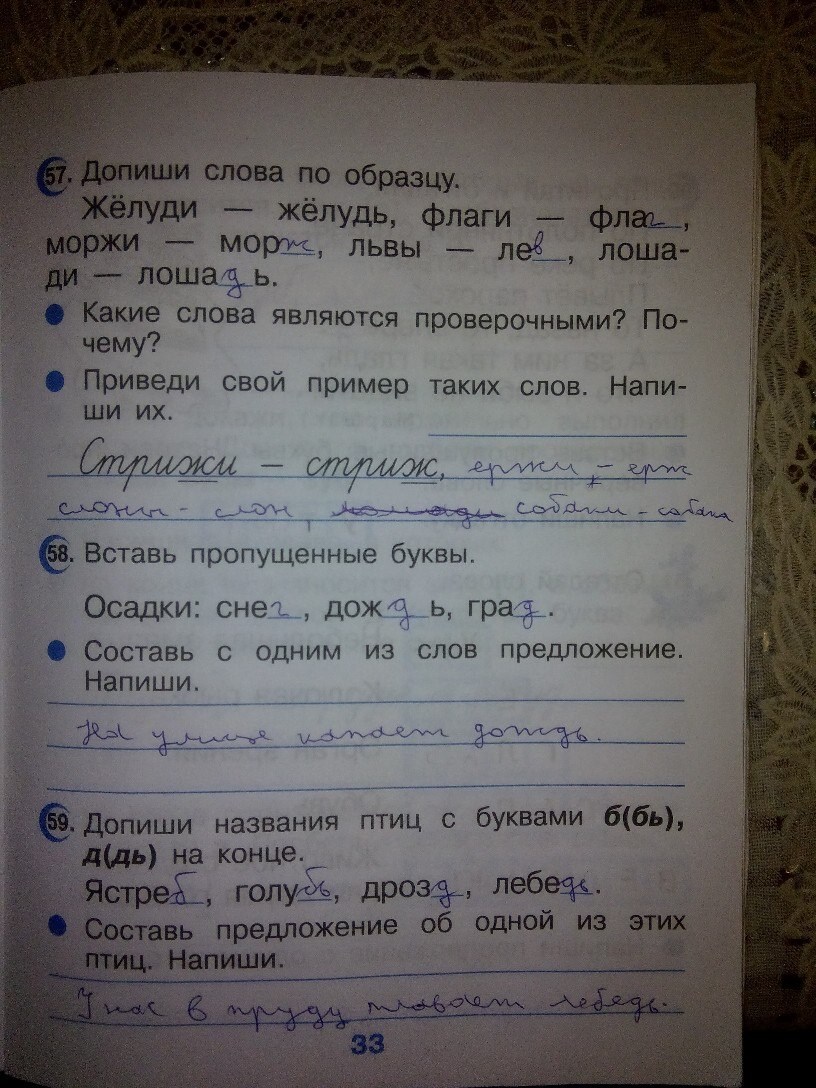 57. Допиши слова по образцу.
Жёлуди — жёлудь, флаги — флаг,
моржи — морж, львы — лев, лоша-
ди — лошадь.
Какие слова являются проверочными? По-
чему?
Приведи свой пример таких слов. Напи-
ши их.
Стрижи – стриж, ержи - ерж
слоны - слон собаки - собака
58. Вставь пропущенные буквы.
Осадки: снег, дождь, град.
Составь с одним из слов предложение.
Напиши.
На улице капает дождь.
59. Допиши названия птиц с буквами б(бь),
д(дь) на конце.
Ястреб, голубь, дрозд, лебедь.
Составь предложение об одной из этих
птиц. Напиши.
У нас в пруду плавает лебедь.
33